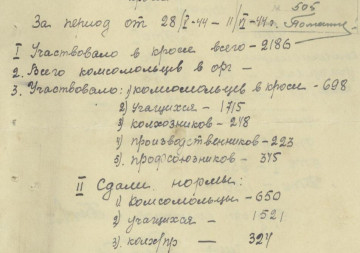 505
За период от 28/I-44 – 11/II-44г.
I Участвовало в кроссе всего – 2186
2. Всего комсомольцев в орг –
3. Участвовало: 1) комсомольцев в кроссе – 698
2) учащихся – 1715
3) колхозников – 248
4) производственников – 223
5) профсоюзников – 375
II Сдали нормы:
1) Комсомольцы – 650
2) учащихся – 1521
3). колх/пр – 327